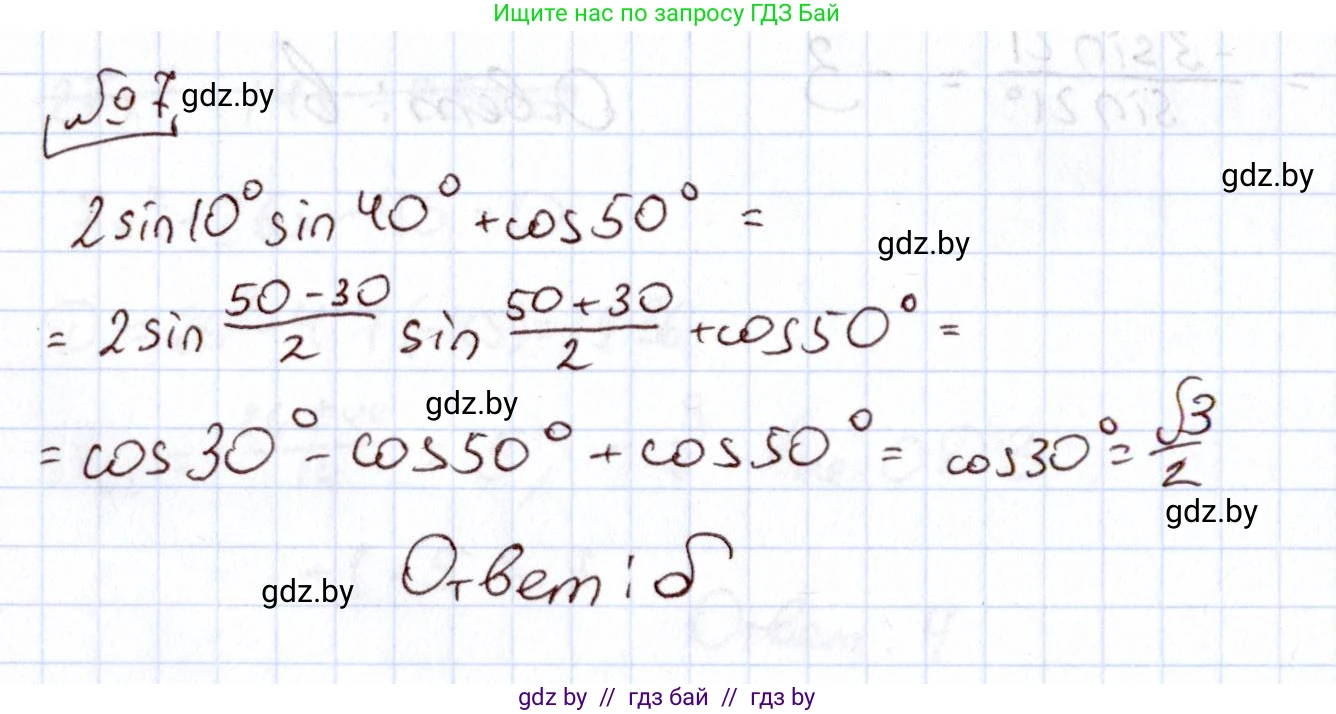 Ищите нас по запросу ГДЗ Бай
№ 7 gdz.by
gdz.by
2sin10° sin 40° + cos 50° =
gdz.by
= 2 sin (50 - 30)/2 sin (50 + 30)/2 + cos 50° =
gdz.by
= cos 30° - cos 50° + cos 50° = cos30° = √3/2
gdz.by
Ответ: б
gdz.by
gdz.by // гдз бай // гдз.by